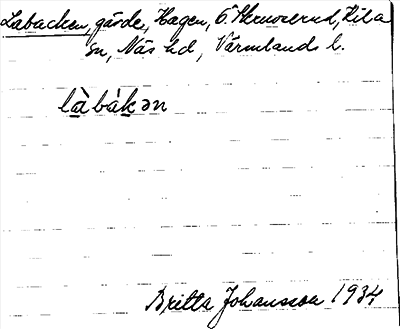 Labacken, gärde, Hagen, Ö. Huvserud, Kila
sn, Näs hd, Värmlands l.
là bákən
Britta Johansson 1934